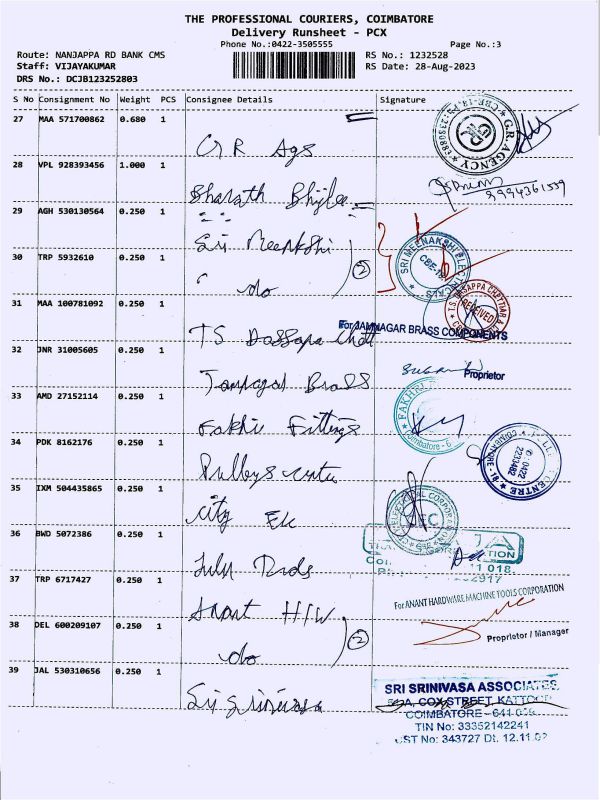 THE PROFESSIONAL COURIERS, COIMBATORE
Delivery Runsheet - PCX
Phone No.:0422-3505555 Page No.:3
Route: NANJAPPA RD BANK CMS RS No.: 1232528
Staff: VIJAYAKUMAR RS Date: 28-Aug-2023
DRS No.: DCJB123252803
S No Consignment No Weight PCS Consignee Details Signature
27 MAA 571700862 0.680 1
G R Ags
G.R.AGENCY
28 VPL 928393456 1.000 1
Bharath Bhijlee
9994361559
29 AGH 530130564 0.250 1
Sri Meenkshi
SRI MEENAKSHI ELECTRICALS
CBE-18
30 TRP 5932610 0.250 1
" do (2)
T.S. DASAPPA CHATTIAR
RECEIVED
31 MAA 100781092 0.250 1
TS Dassapa Chatt
For JAMNAGAR BRASS COMPONENTS
32 JNR 31005605 0.250 1
Proprietor
Jamnagar Brass
33 AMD 27152114 0.250 1
FAKHRI
Coimbatore - 6
Fakhri Fittings
34 PDK 8162176 0.250 1
CENTRE
0422
2233482
35 IXM 504435865 0.250 1
City Elc
CEC
36 BWD 5072386 0.250 1
11 018.
July Rods
37 TRP 6717427 0.250 1
For ANANT HARDWARE MACHINE TOOLS CORPORATION
Anant H/W
38 DEL 600209107 0.250 1
Proprietor / Manager
do (2)
39 JAL 530310656 0.250 1
SRI SRINIVASA ASSOCIATES
Sri Srinivasa
COX STREET, KATTOOR
COIMBATORE - 641 009
TIN No: 33352142241
CST No: 343727 Dt. 12.11.02